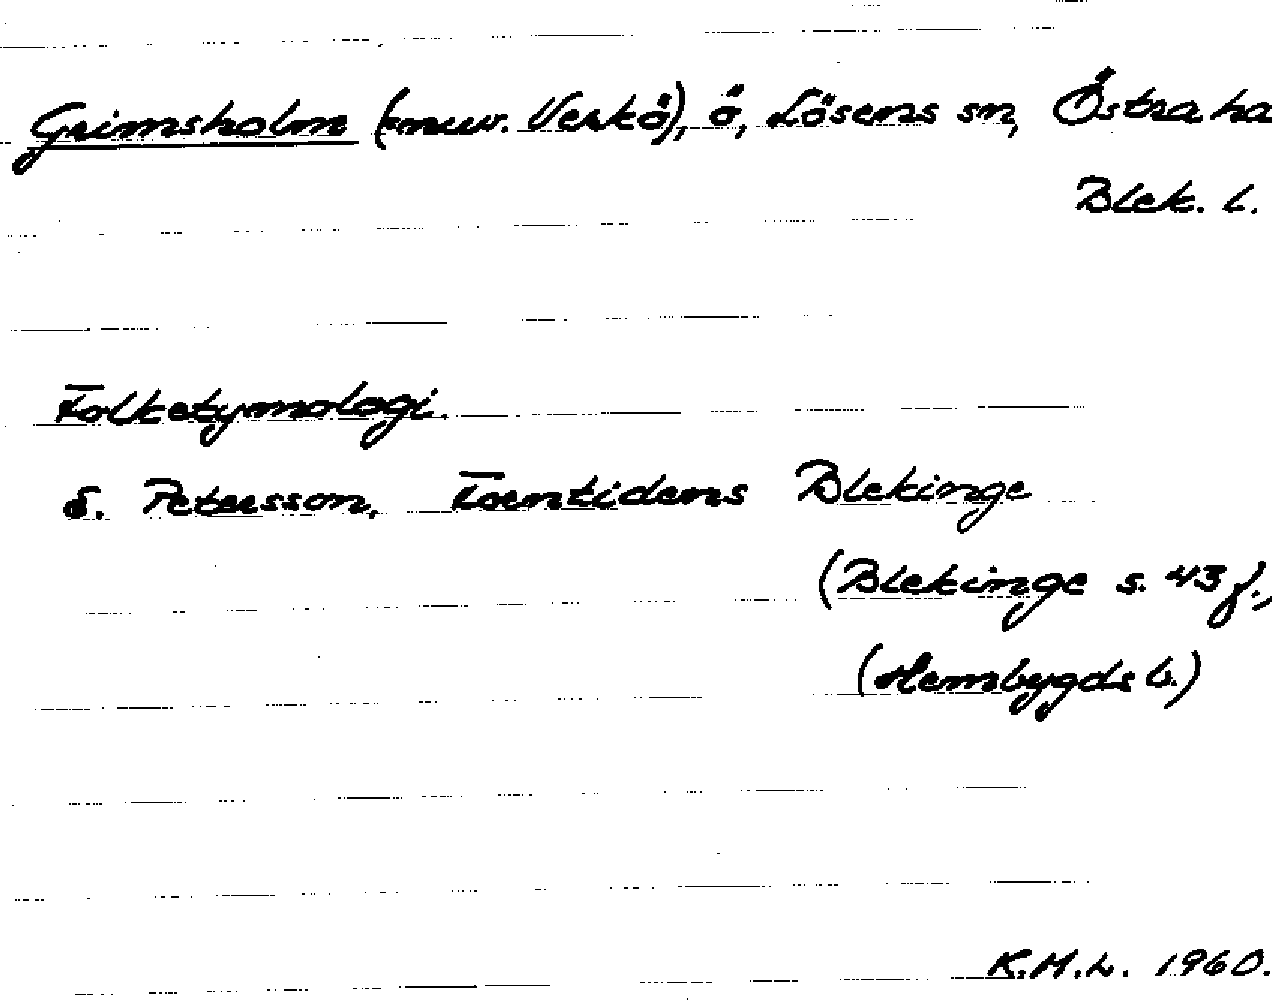 Grimsholm (=nuv. Verkö), ö, Lösens sn, Östra ha
Blek. l.
Folketymologi.
S. Petersson, Forntidens Blekinge
(Blekinge s. 43 f.,
(Hembygdsb.)
K.H.L. 1960.